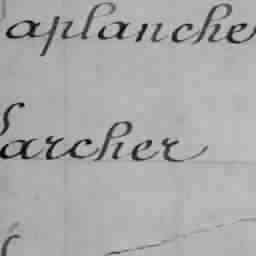 aplanche
archer